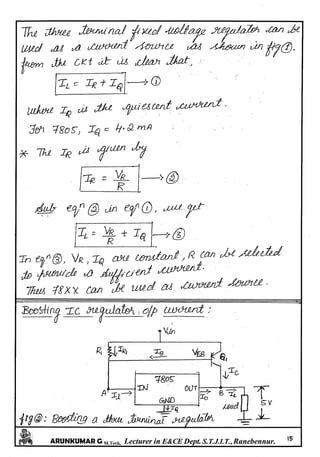 The three terminal fixed voltage regulator can be
used as a current source as shown in fig①.
from the ckt it is clear that,
IL = IR + IQ → ①
where IQ is the quiescent current.
For 7805, IQ = 4.2 mA
* The IR is given by
IR = VR / R → ②
Sub eqn ② in eqn ①, we get
IL = VR / R + IQ → ③
In eqn ③, VR, IQ are constant, R can be selected
to provide a sufficient current.
Thus 78XX can be used as current source.
Boosting IC regulator o/p current :
Vin
R1 IR1 IB VEB Q1
IC
7805
A II IN OUT IO B IL
GND
IQ
load 5V
fig②: Boosting a three terminal regulator
ARUNKUMAR G M.Tech, Lecturer in E&CE Dept. S.T.J.I.T., Ranebennur. 15